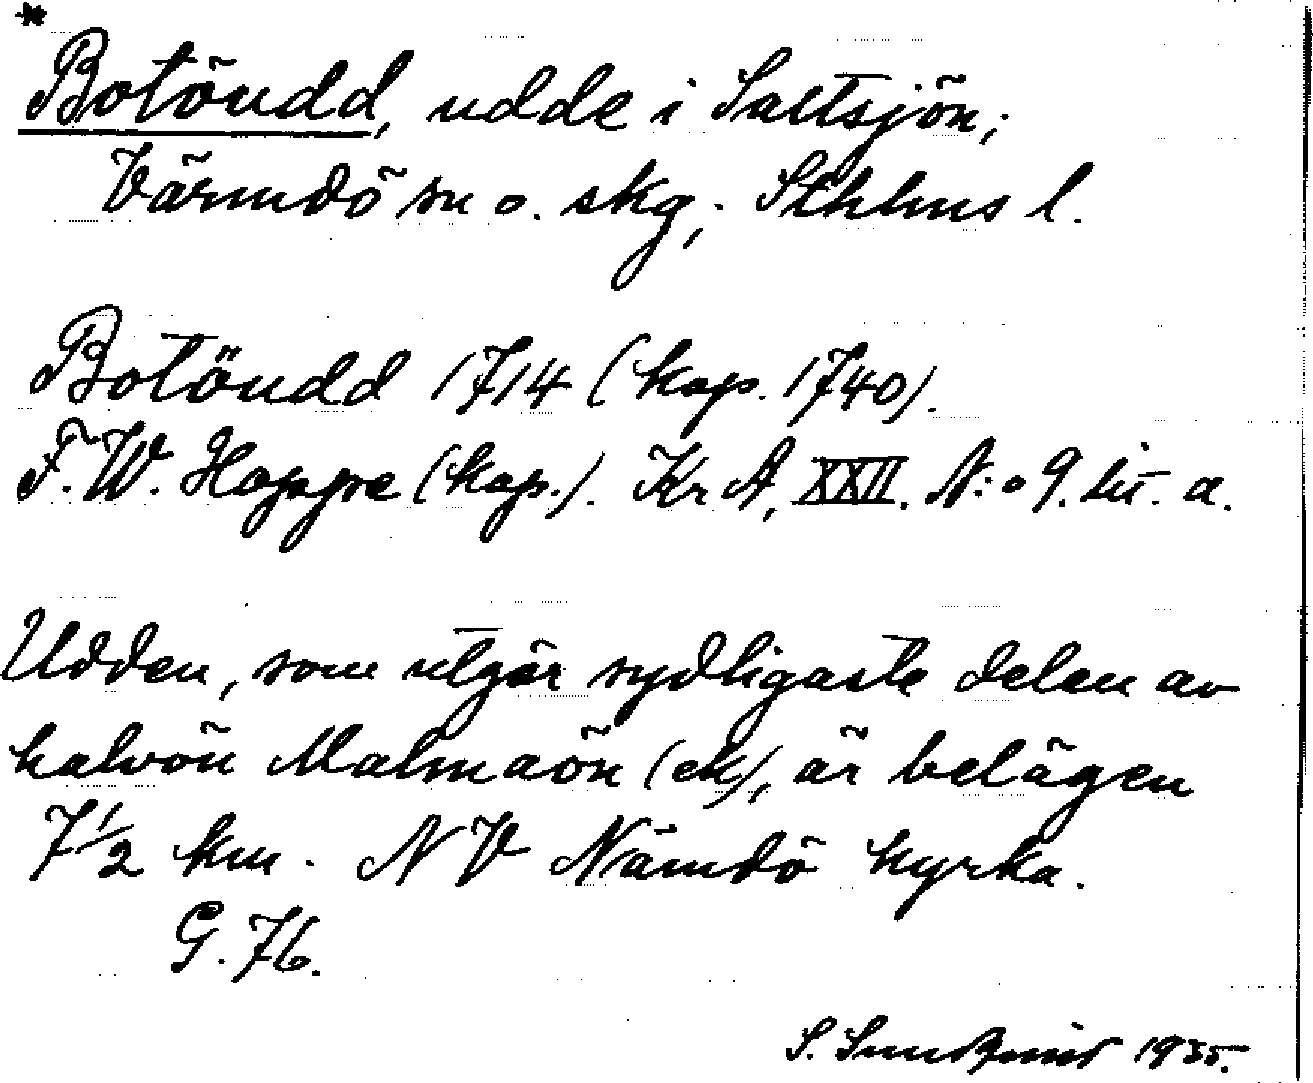 *
Botöudd, udde i Saltsjön;
Värmdö sn o. skg; Sthlms l.
Botöudd 1714 (kop. 1740).
F. W. Hoppe (kop.). Kr A, XXII. N:o 9. lit. a.
Udden, som utgör sydligaste delen av
halvön Malmaön (ek), är belägen
7 1/2 km. NV Nämdö kyrka.
G. 76.
S. 1935.